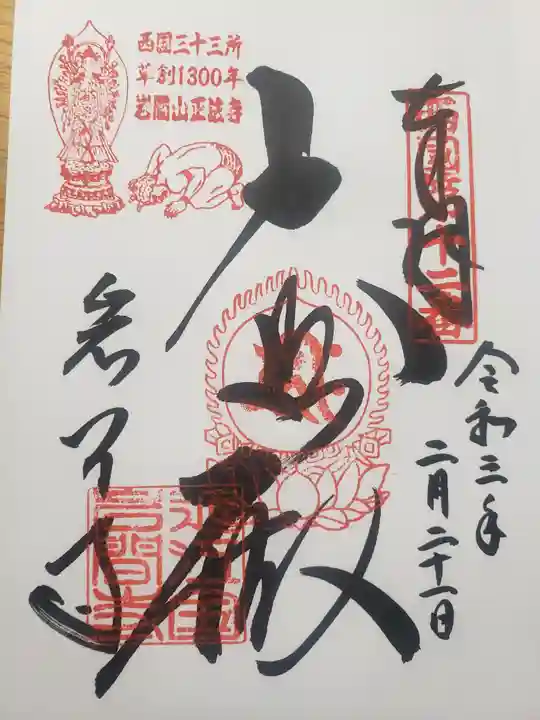 奉拝
西国第十二番
令和三年
二月二十一日
大悲殿
岩間寺
西国三十三所
草創1300年
岩間山正法寺